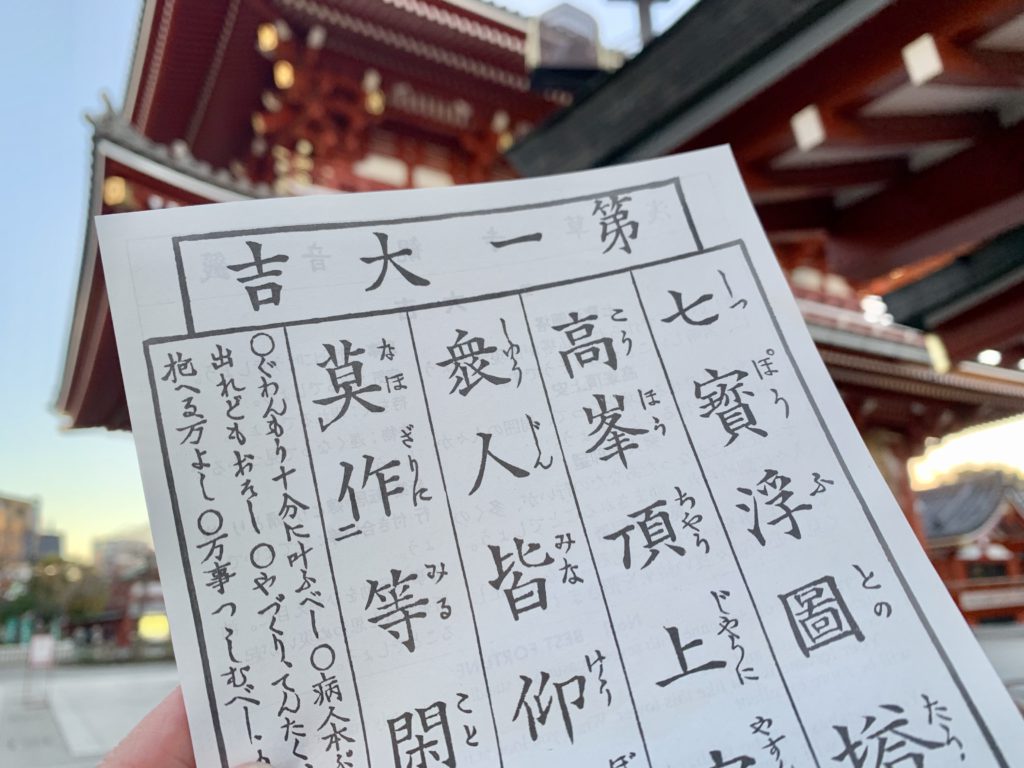 第一大吉
しつ ぽう ふ との たう
七寶浮圖塔
こう ほう ちやう じやうに やすん
高峯頂上
しゆう じん みな けう
衆人皆仰
なほ ざりに みる こと
莫作二等閑
○ぐわんもう十分に叶ふべし○病人本ぶ
出れどもおそし○やづくり、てんたく
抱へる万よし○万事つゝしむべし